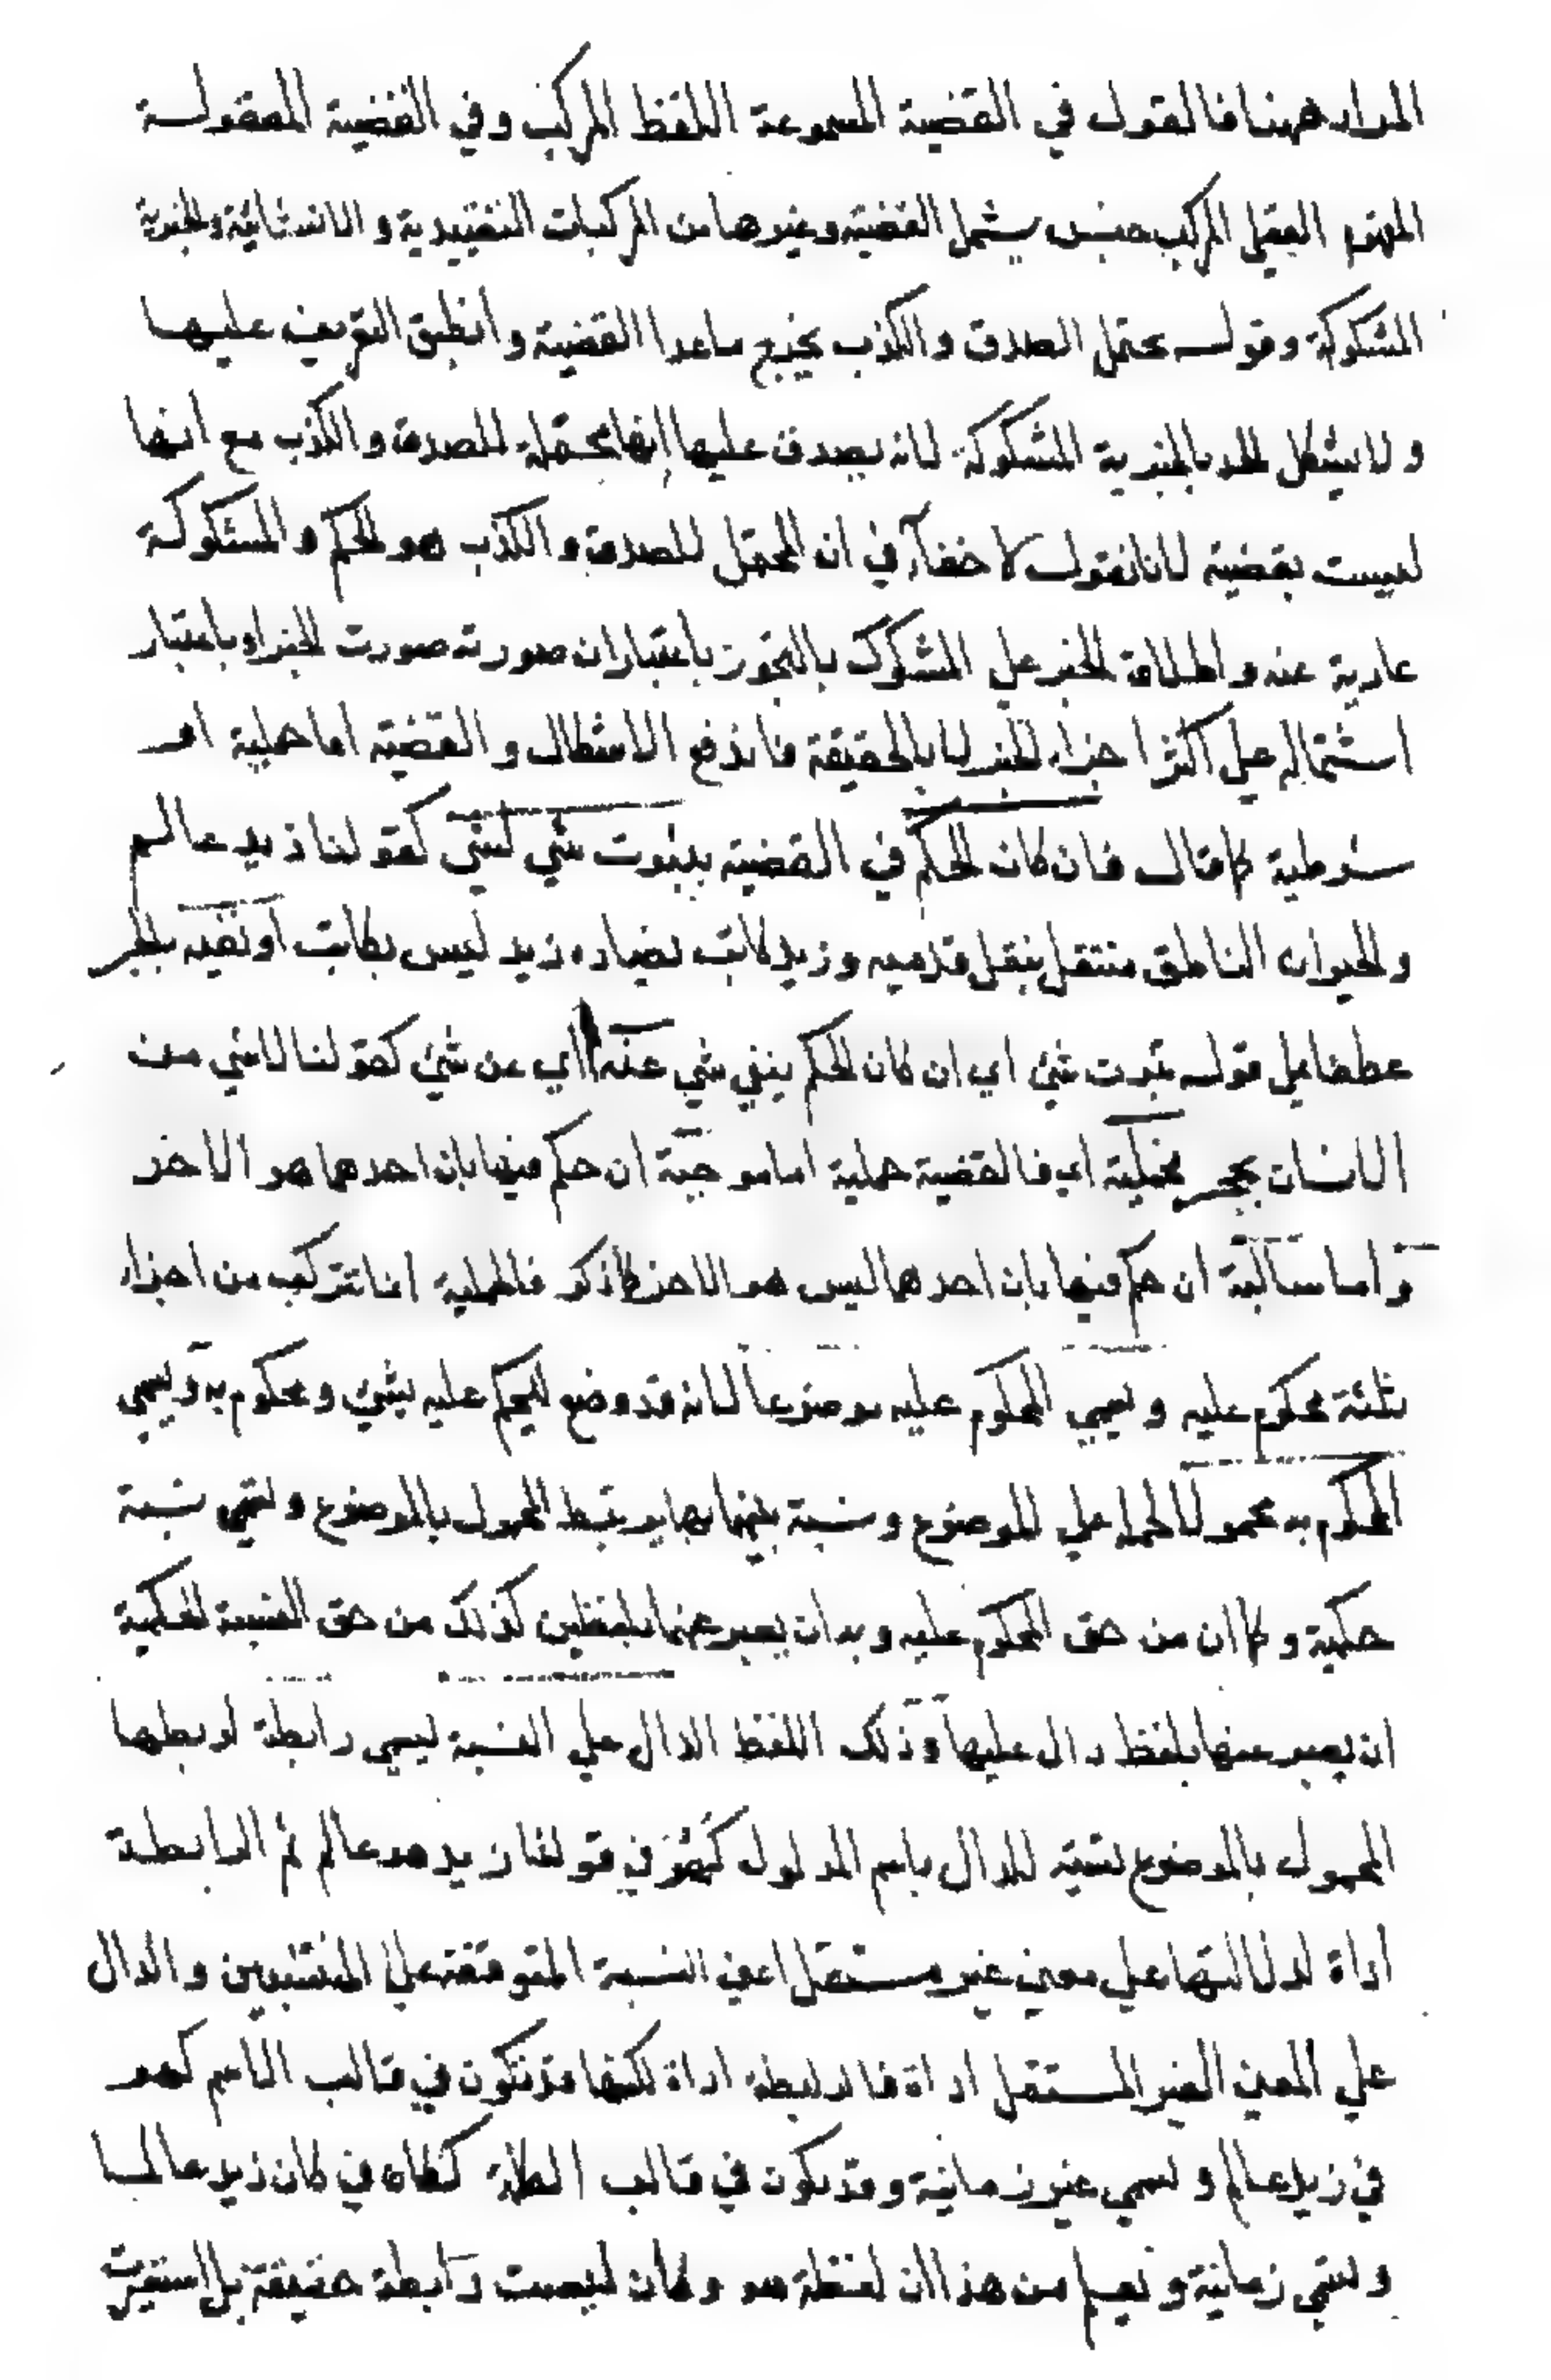 المراد ههنا فالقول في القضية المسموعة اللفظ المركب وفي القضية المعقولة
المفهوم العقلي المركب جنس يشمل القضية وغيرها من المركبات التقييدية والانشائية والخبرية
المشكوكة وقوله يحتمل الصدق والكذب يخرج ماعدا القضية وانطبق التعريف عليها
ولا يشكل الحد بالخبرية المشكوكة لانه يصدق عليها انها محتملة للصدق والكذب مع انها
ليست بقضية لانا نقول لا خفآء في ان المحتمل للصدق والكذب هو الحكم والمشكوكة
عارية عنه واطلاق الخبر على المشكوك بالتجوز باعتباران صورته صورت الخبر او باعتبار
اشتماله على اكثر اجزاء الخبر لا بالحقيقة فاندفع الاشكال والقضية اما حملية او
شرطية كما قال فان كان الحكم في القضية بثبوت شي لشي كقولنا زيد عالم
والحيوان الناطق منتقل بنقل قدميه وزيد كاتب يضاده زيد ليس بكاتب او نفيه بالجر
عطفا على قوله ثبوت شئ اي ان كان الحكم بنفي شي عنه اي عن شئ كقولنا لاشي من
الانسان بحجر فحملية اي فالقضية حملية اما موجبة ان حكم فيها بان احدهما هو الاخر
واما سالبة ان حكم فيها بان احدهما ليس هو الاخر كما ذكر فالحملية انما تتركب من اجزاء
ثلثة محكوم عليه ويسمي المحكوم عليه موضوعا لانه قد وضع ليحكم عليه بشئ ومحكوم به ويسمي
المحكوم به محمولا لحمله على الموضوع ونسبة بينهما بها يرتبط المحمول بالموضوع وتسمي نسبة
حكمية وكما ان من حق المحكوم عليه وبه ان يعبر عنهما بلفظين كذلك من حق النسبة الحكمية
ان يعبر عنها بلفظ دال عليها وذلك اللفظ الدال علي النسبة يسمي رابطة لربطها
المحمول بالموضوع تسمية للدال باسم المدلول كهو في قولنا زيد هو عالم ثم الرابطة
اداة لدلالتها علي معني غير مستقل اعني النسبة المتوقفة علي المنتسبين والدال
علي المعني الغير المستقل اداة فالرابطة اداة لكنها قد تكون في قالب الاسم كهو
في زيد عالم ويسمي غير زمانية وقد يكون في قالب الكلمة ككان في كان زيد عالما
وتسمي زمانية ويعلم من هذا ان لفظة هو وكان ليست رابطة حقيقة بل استعيرت